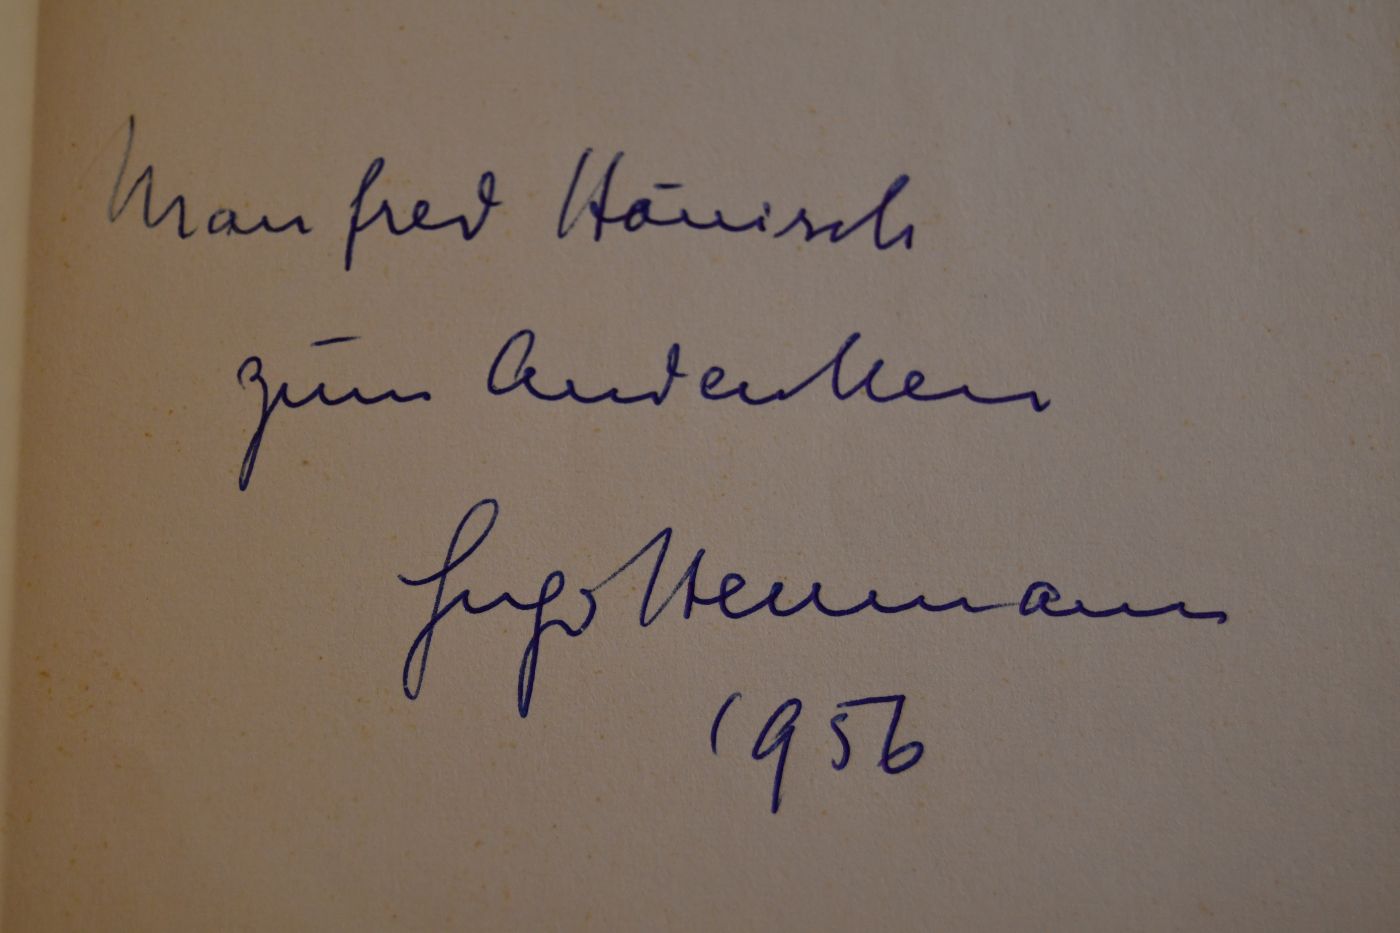 Manfred Hänisch
zum Andenken
Hugo Herrmann
1956